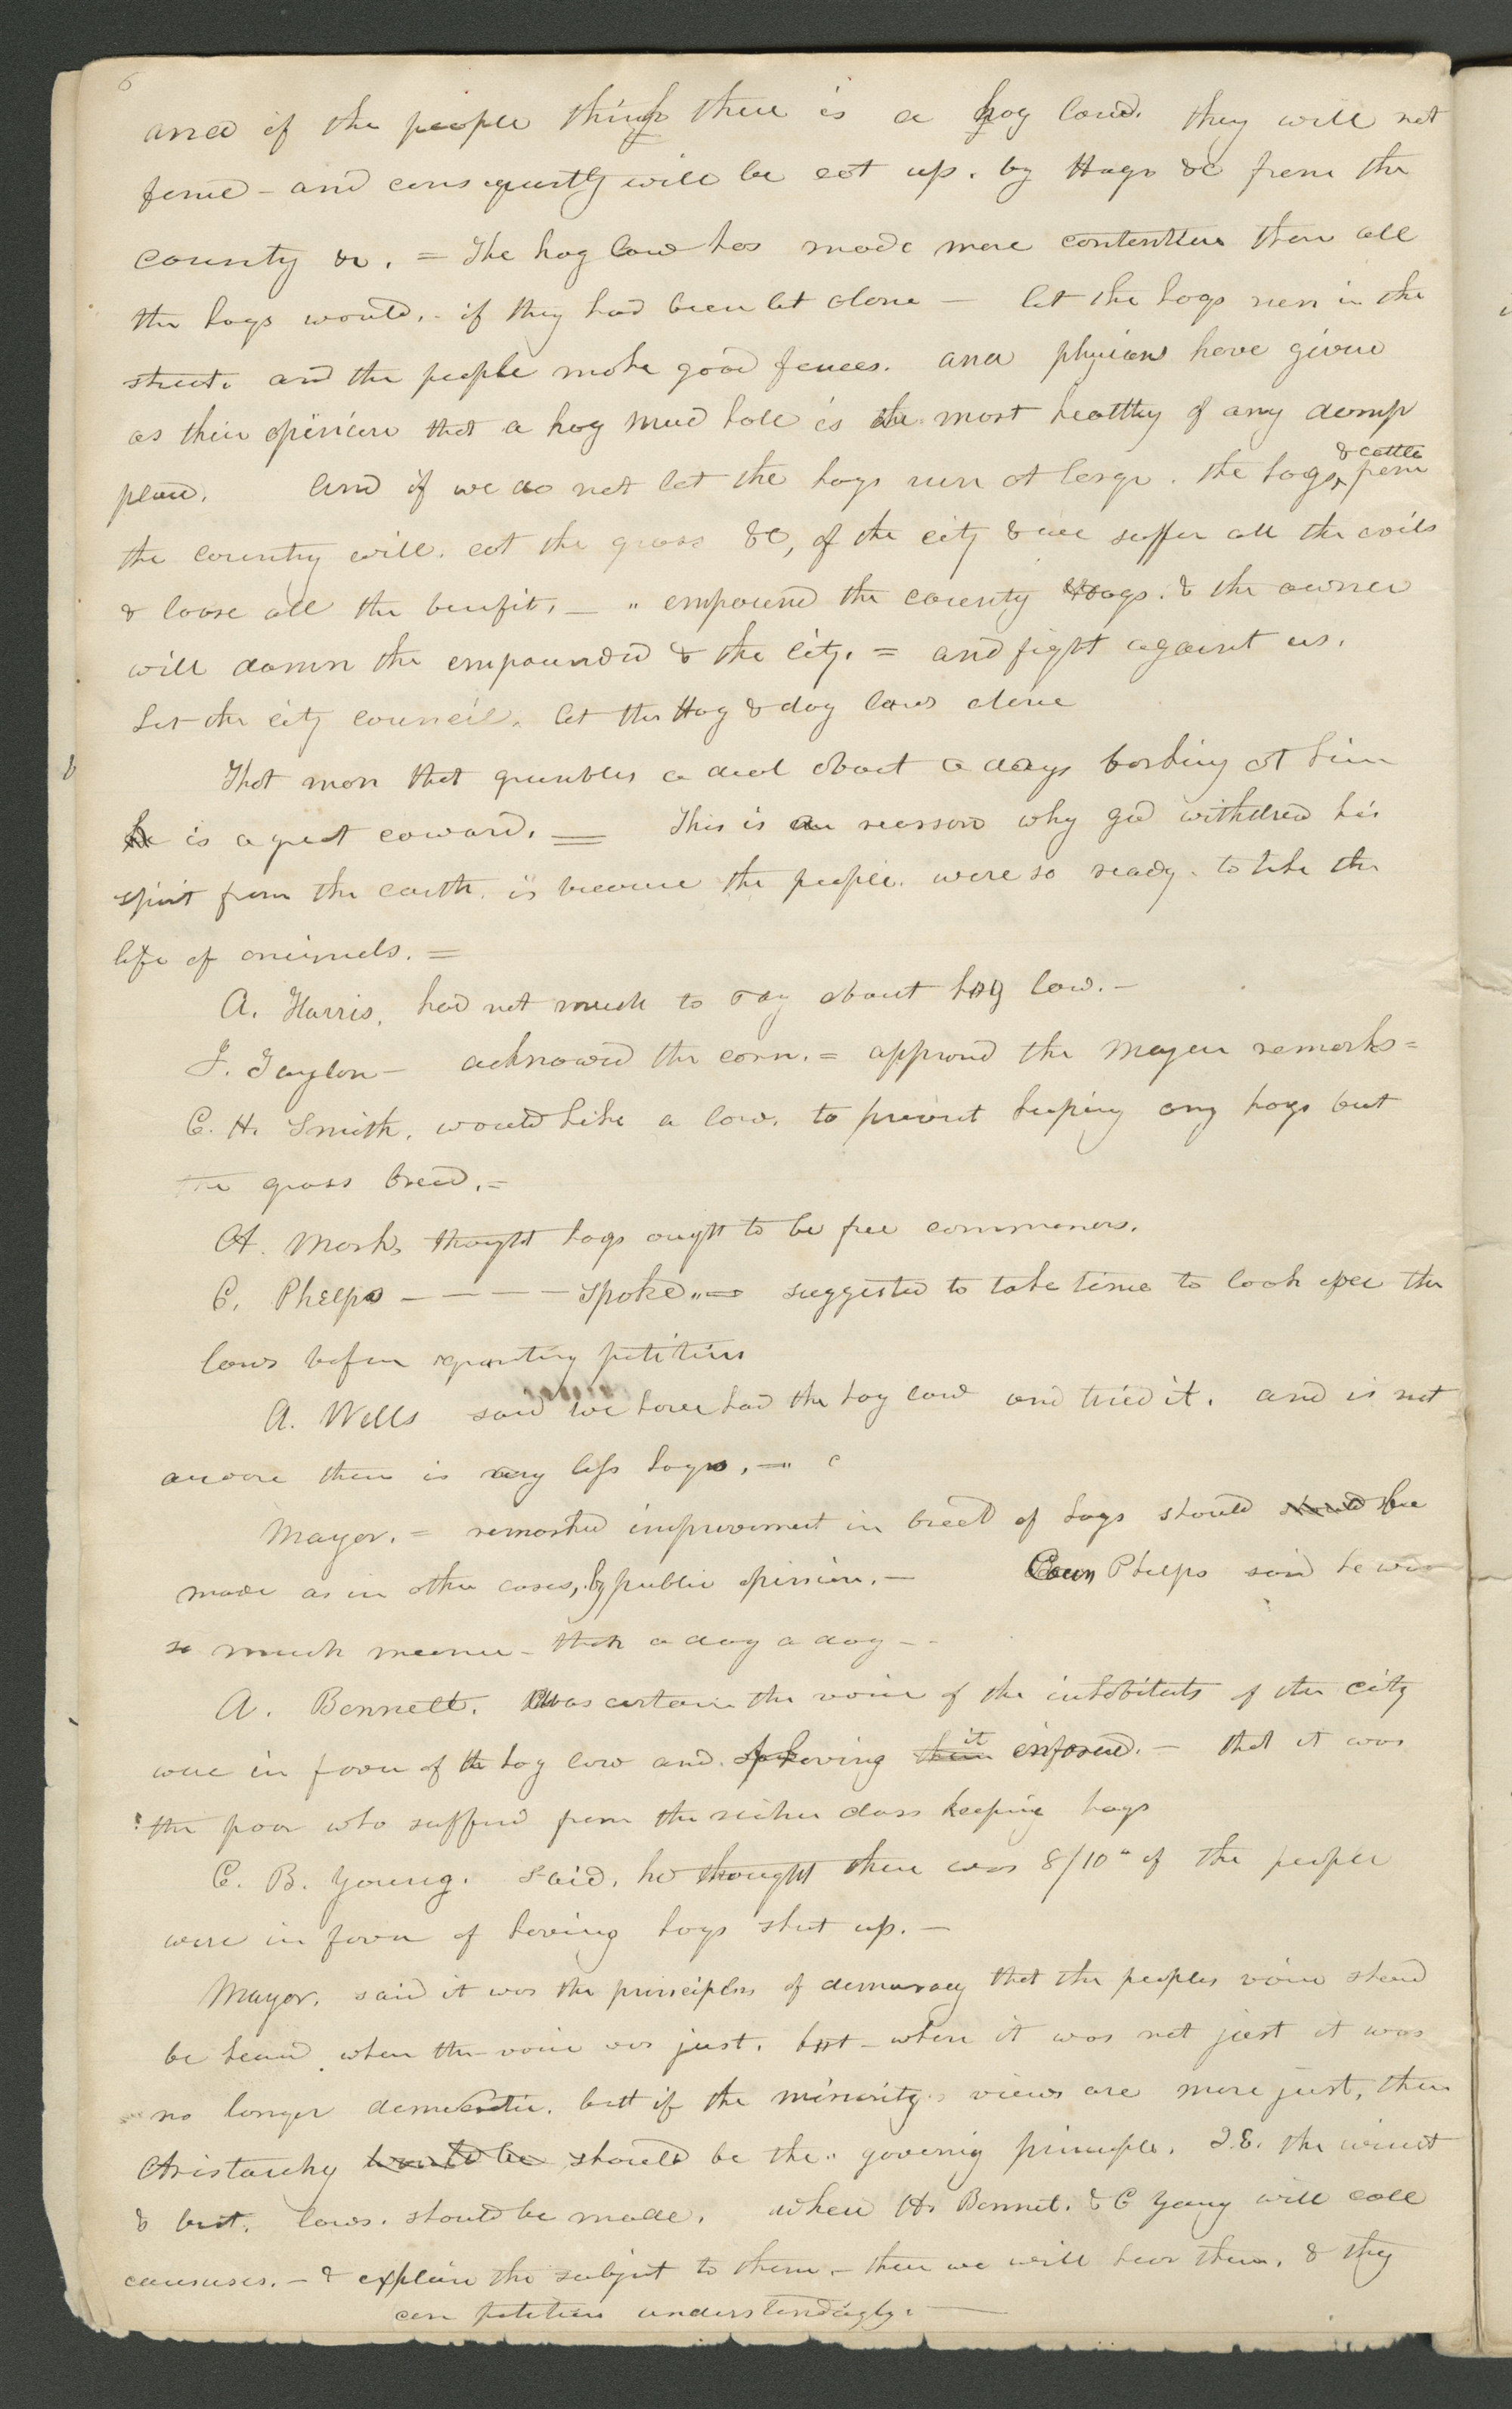 6
and if the people think there is a hog law. they will not
fence - and consequently will be eat up. by Hogs &c from the
county &c. = The hog law has made more contention then all
the hogs would. - if they had been let alone — let the hogs run in the
street. and the people make good fences. and physicians have given
as their opinion that a hog mud hole is the most healthy of any damp
place. and if we do not let the hogs run at large. the hogs & cattle from
the country will. eat the grass &c, of the city & we suffer all the evils
& loose all the benefit. — " empound the county Hogs. & the owner
will damn the empounder & the city. = and fight against us.
Let the city council. let the Hog & dog laws alone
That man that grumbles a deal about a dogs barking at him
he is a great coward. = This is a reason why god withdrew his
spirit from the earth. is because the people. were so ready. to take the
life of animals. =
A. Harris, had not much to say about hog law. -
J. Taylor - acknowed the corn. = approved the Mayor remarks =
C. H. Smith. would like a law. to prevent keeping any hogs but
the grass breed. =
A. Marks thought hogs ought to be free commoners.
C. Phelps - - - - spoke " = suggested to take time to look over the
laws before granting petitions
A. Wells said we have had the hog law and tried it. and is not
aware there is any less hogs. - "
Mayor. = remarked improvement in breed of hogs should should be
made as in other cases, by public opinion. - Coun Phelps said he was
so much meaner - than a dog a dog - -
A. Bennett. was certain the voice of the inhabitants of the city
were in favor of the hog law and of having them it enforced. - that it was
the poor who suffered from the richer class keeping hogs
C. B. Young. said. he thought there was 8/10" of the people
were in favor of having hogs shut up. -
Mayor. said it was the principles of democracy that the peoples voice should
be heard when the voice was just. but - when it was not just it was
no longer democratic. but if the minority views are more just, then
Aristarchy would be should be the " governig principle. I.E. the wisest
& best. laws. should be made. when A. Bennet. & C Young will call
caucuses. - & explain the subject to them - then we will hear them. & they
can petition understandingly. —